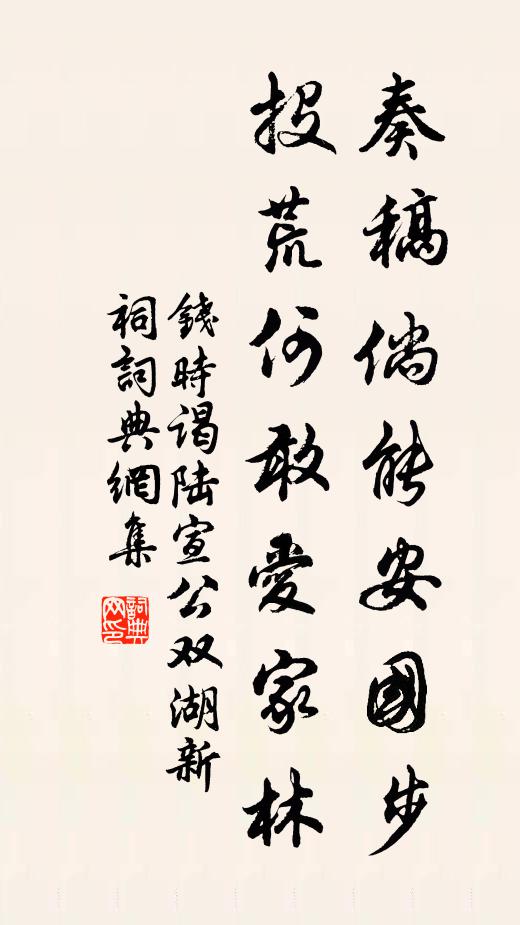 奏稿倘能安國步
投荒何敢愛家林
錢時谒陆宣公双湖新
祠詞典網集
詞典网印